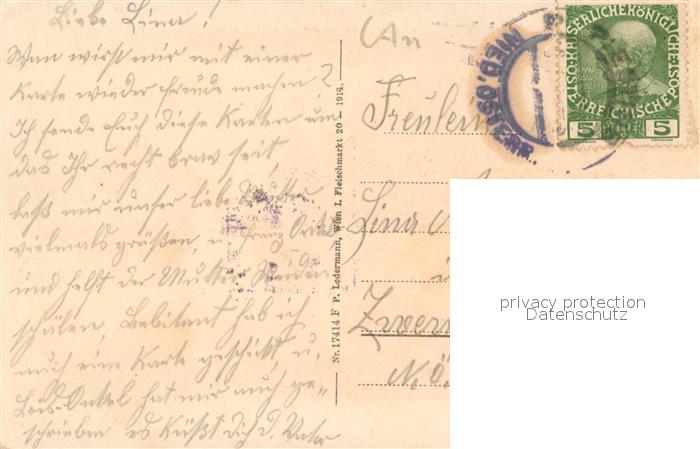 Liebe Lina!
Wan wirst mir mit einer
Karte wieder Freude machen?
Ich sende Euch diese Karten um
das Ihr recht brav seit,
laß mir unser liebe Mutter
vielmals grüßen, u. Franz Onkel,
und helft der Mutter Weiden
schälen, hab ich
auch eine Karte geschickt u.
Lois-Onkel hat mir auch ge-
schrieben es Küßt Dich d. Vater
Nr. 17414 F P. Ledermann, Wien I. Fleischmarkt 20 – 1914.
An
Freulein
Lina
in
N.Ö.
NIED. OSTERR.
KAISERLICHE KÖNIGLICHE
ÖSTERREICHISCHE POST
5 HELLER 5
privacy protection
Datenschutz